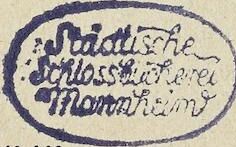 Städtische
Schlossbücherei
Mannheim